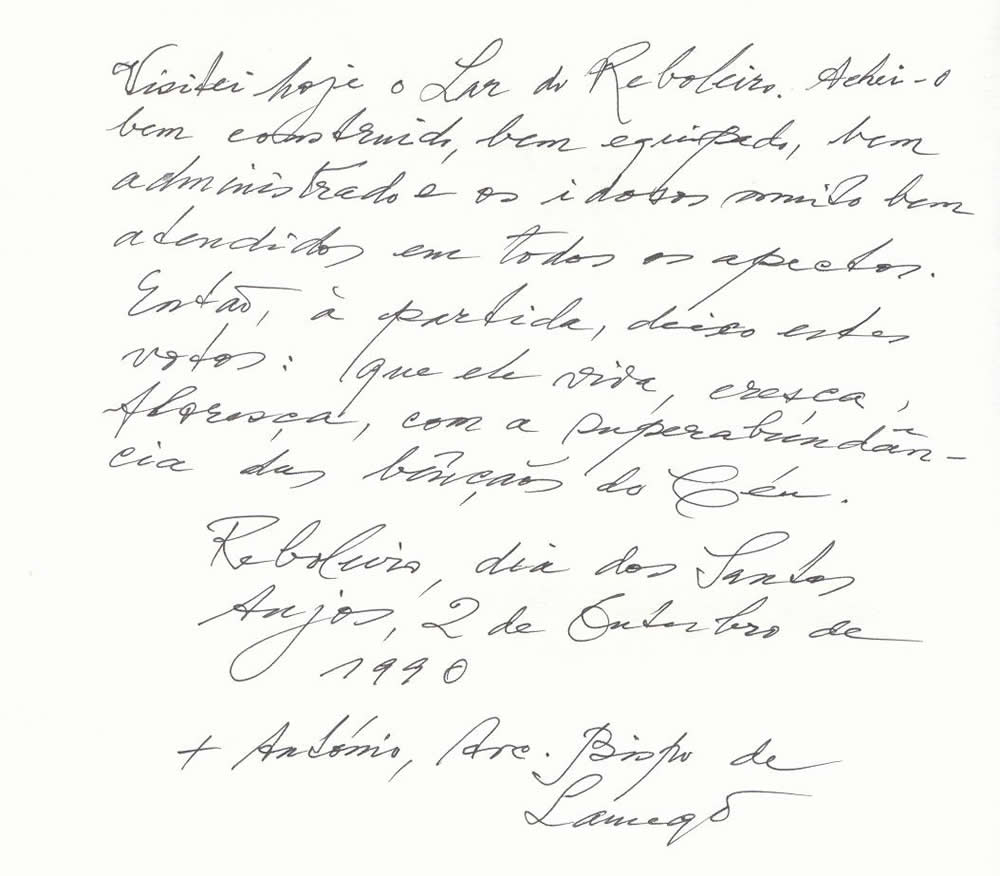 Visitei hoje o Lar do Reboleiro. Achei-o
bem construido, bem equipado, bem
administrado e os idosos muito bem
atendidos em todos os apectos.
Então, à partida, deixo estes
votos: que ele viva, cresça,
floresça, com a superabundân-
cia das bênçãos do Céu.
Reboleiro, dia dos Santos
Anjos, 2 de Outubro de
1990
+ António, Arc. Bispo de
Lamego